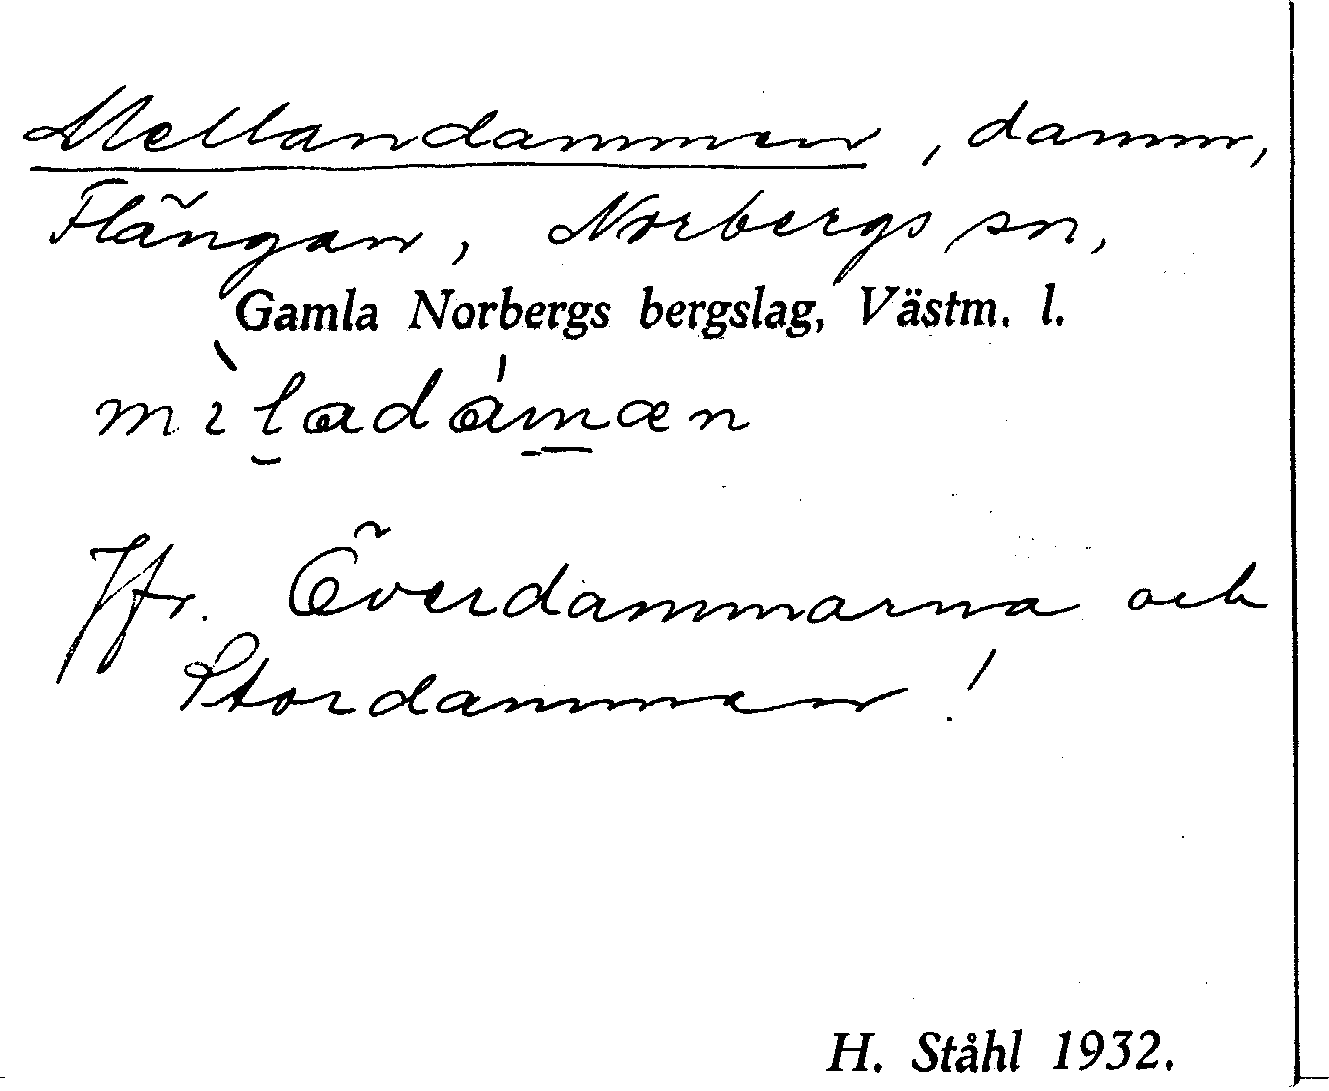 Mellandammen, damm,
Flängan, Norbergs sn,
Gamla Norbergs bergslag, Västm. l.
Jfr. Överdammarna och
Stordammen!
H. Ståhl 1932.